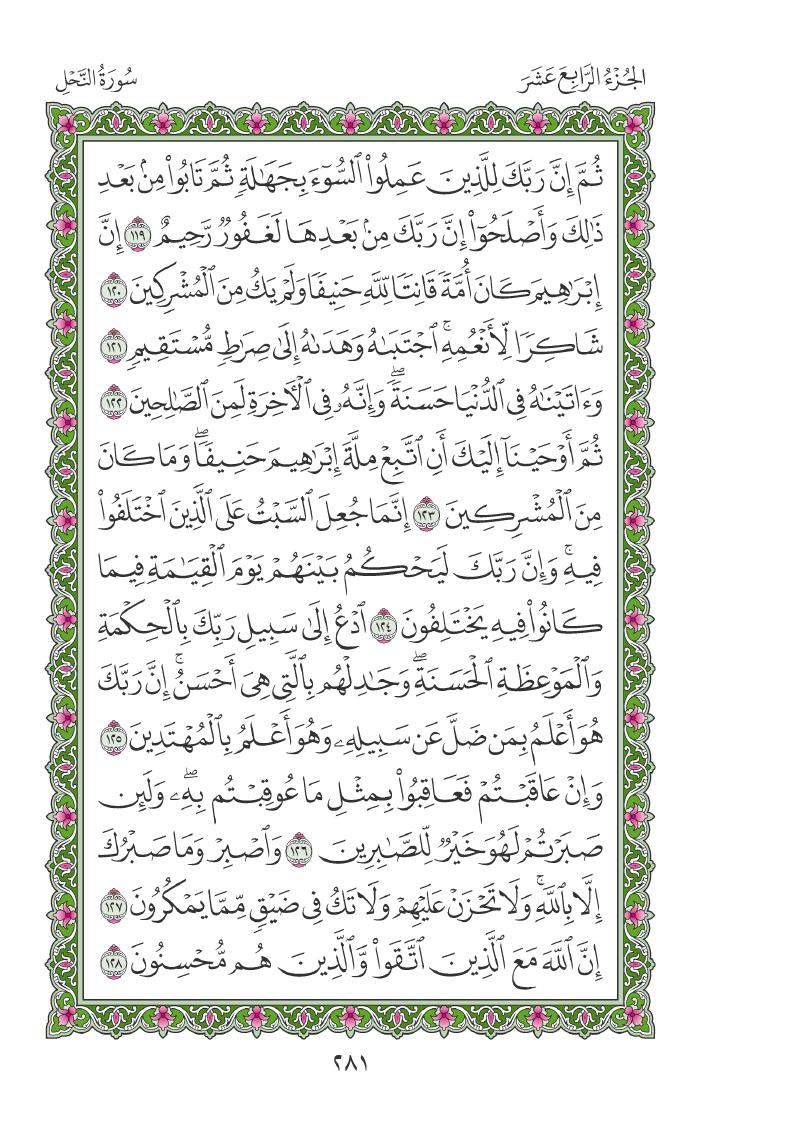 الجُزْءُ الرَّابِعَ عَشَرَ
سُورَةُ النَّحْلِ
ثُمَّ إِنَّ رَبَّكَ لِلَّذِينَ عَمِلُوا۟ ٱلسُّوٓءَ بِجَهَٰلَةٖ ثُمَّ تَابُوا۟ مِنۢ بَعۡدِ
ذَٰلِكَ وَأَصۡلَحُوٓا۟ إِنَّ رَبَّكَ مِنۢ بَعۡدِهَا لَغَفُورٞ رَّحِيمٌ ١١٩ إِنَّ
إِبۡرَٰهِيمَ كَانَ أُمَّةٗ قَانِتٗا لِّلَّهِ حَنِيفٗا وَلَمۡ يَكُ مِنَ ٱلۡمُشۡرِكِينَ ١٢٠
شَاكِرٗا لِّأَنۡعُمِهِۚ ٱجۡتَبَىٰهُ وَهَدَىٰهُ إِلَىٰ صِرَٰطٖ مُّسۡتَقِيمٖ ١٢١
وَءَاتَيۡنَٰهُ فِي ٱلدُّنۡيَا حَسَنَةٗۖ وَإِنَّهُۥ فِي ٱلۡأٓخِرَةِ لَمِنَ ٱلصَّٰلِحِينَ ١٢٢
ثُمَّ أَوۡحَيۡنَآ إِلَيۡكَ أَنِ ٱتَّبِعۡ مِلَّةَ إِبۡرَٰهِيمَ حَنِيفٗاۖ وَمَا كَانَ
مِنَ ٱلۡمُشۡرِكِينَ ١٢٣ إِنَّمَا جُعِلَ ٱلسَّبۡتُ عَلَى ٱلَّذِينَ ٱخۡتَلَفُوا۟
فِيهِۚ وَإِنَّ رَبَّكَ لَيَحۡكُمُ بَيۡنَهُمۡ يَوۡمَ ٱلۡقِيَٰمَةِ فِيمَا
كَانُوا۟ فِيهِ يَخۡتَلِفُونَ ١٢٤ ٱدۡعُ إِلَىٰ سَبِيلِ رَبِّكَ بِٱلۡحِكۡمَةِ
وَٱلۡمَوۡعِظَةِ ٱلۡحَسَنَةِۖ وَجَٰدِلۡهُم بِٱلَّتِي هِيَ أَحۡسَنُۚ إِنَّ رَبَّكَ
هُوَ أَعۡلَمُ بِمَن ضَلَّ عَن سَبِيلِهِۦ وَهُوَ أَعۡلَمُ بِٱلۡمُهۡتَدِينَ ١٢٥
وَإِنۡ عَاقَبۡتُمۡ فَعَاقِبُوا۟ بِمِثۡلِ مَا عُوقِبۡتُم بِهِۦۖ وَلَئِن
صَبَرۡتُمۡ لَهُوَ خَيۡرٞ لِّلصَّٰبِرِينَ ١٢٦ وَٱصۡبِرۡ وَمَا صَبۡرُكَ
إِلَّا بِٱللَّهِۚ وَلَا تَحۡزَنۡ عَلَيۡهِمۡ وَلَا تَكُ فِي ضَيۡقٖ مِّمَّا يَمۡكُرُونَ ١٢٧
إِنَّ ٱللَّهَ مَعَ ٱلَّذِينَ ٱتَّقَوا۟ وَّٱلَّذِينَ هُم مُّحۡسِنُونَ ١٢٨
٢٨١